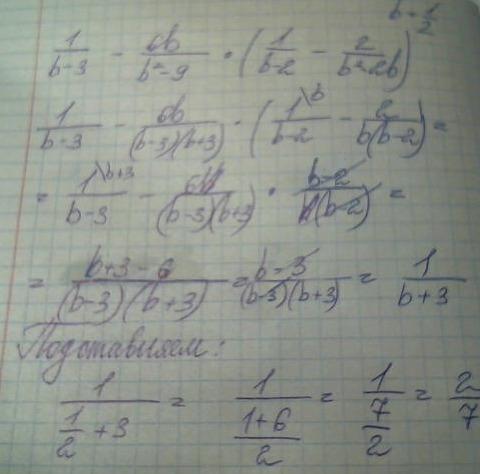 b = 1/2
1/(b-3) - 6b/(b²-9) · (1/(b-2) - 2/(b²-2b))
1/(b-3) - 6b/((b-3)(b+3)) · (1\b/(b-2) - 2/(b(b-2)) =
= 1\b+3/(b-3) - 6b/((b-3)(b+3)) · (b-2)/(b(b-2)) =
= (b+3-6)/((b-3)(b+3)) = (b-3)/((b-3)(b+3)) = 1/(b+3)
Подставляем:
1/(1/2 + 3) = 1/((1+6)/2) = 1/(7/2) = 2/7